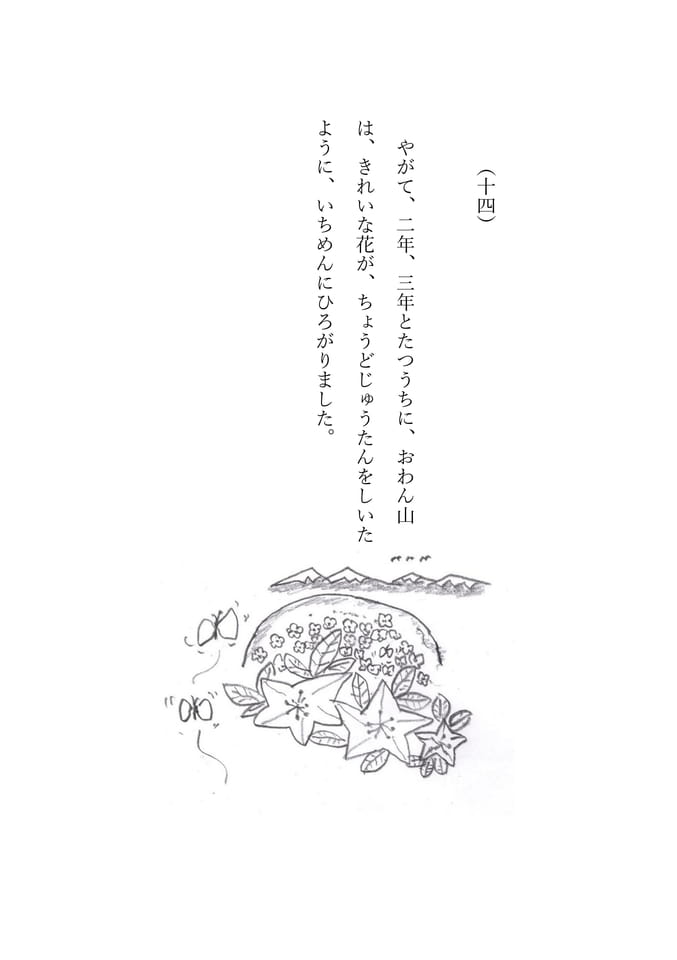 （十四）
やがて、二年、三年とたつうちに、おわん山
は、きれいな花が、ちょうどじゅうたんをしいた
ように、いちめんにひろがりました。